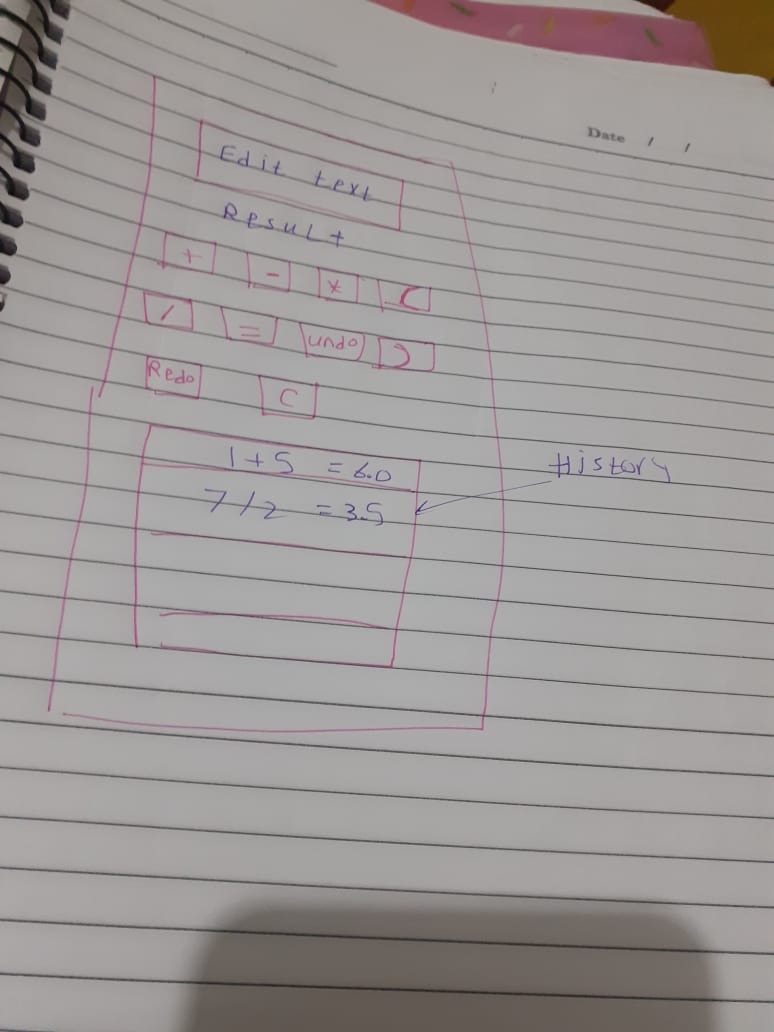 Date / /
Edit text
Result
+ - * (
/ = undo )
Redo C
1+5 =6.0
History
7/2 =3.5